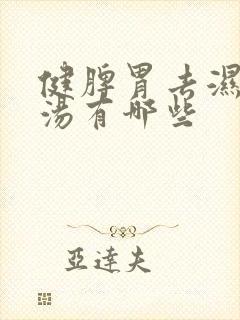 健脾胃去濕
湯有哪些
亞達夫